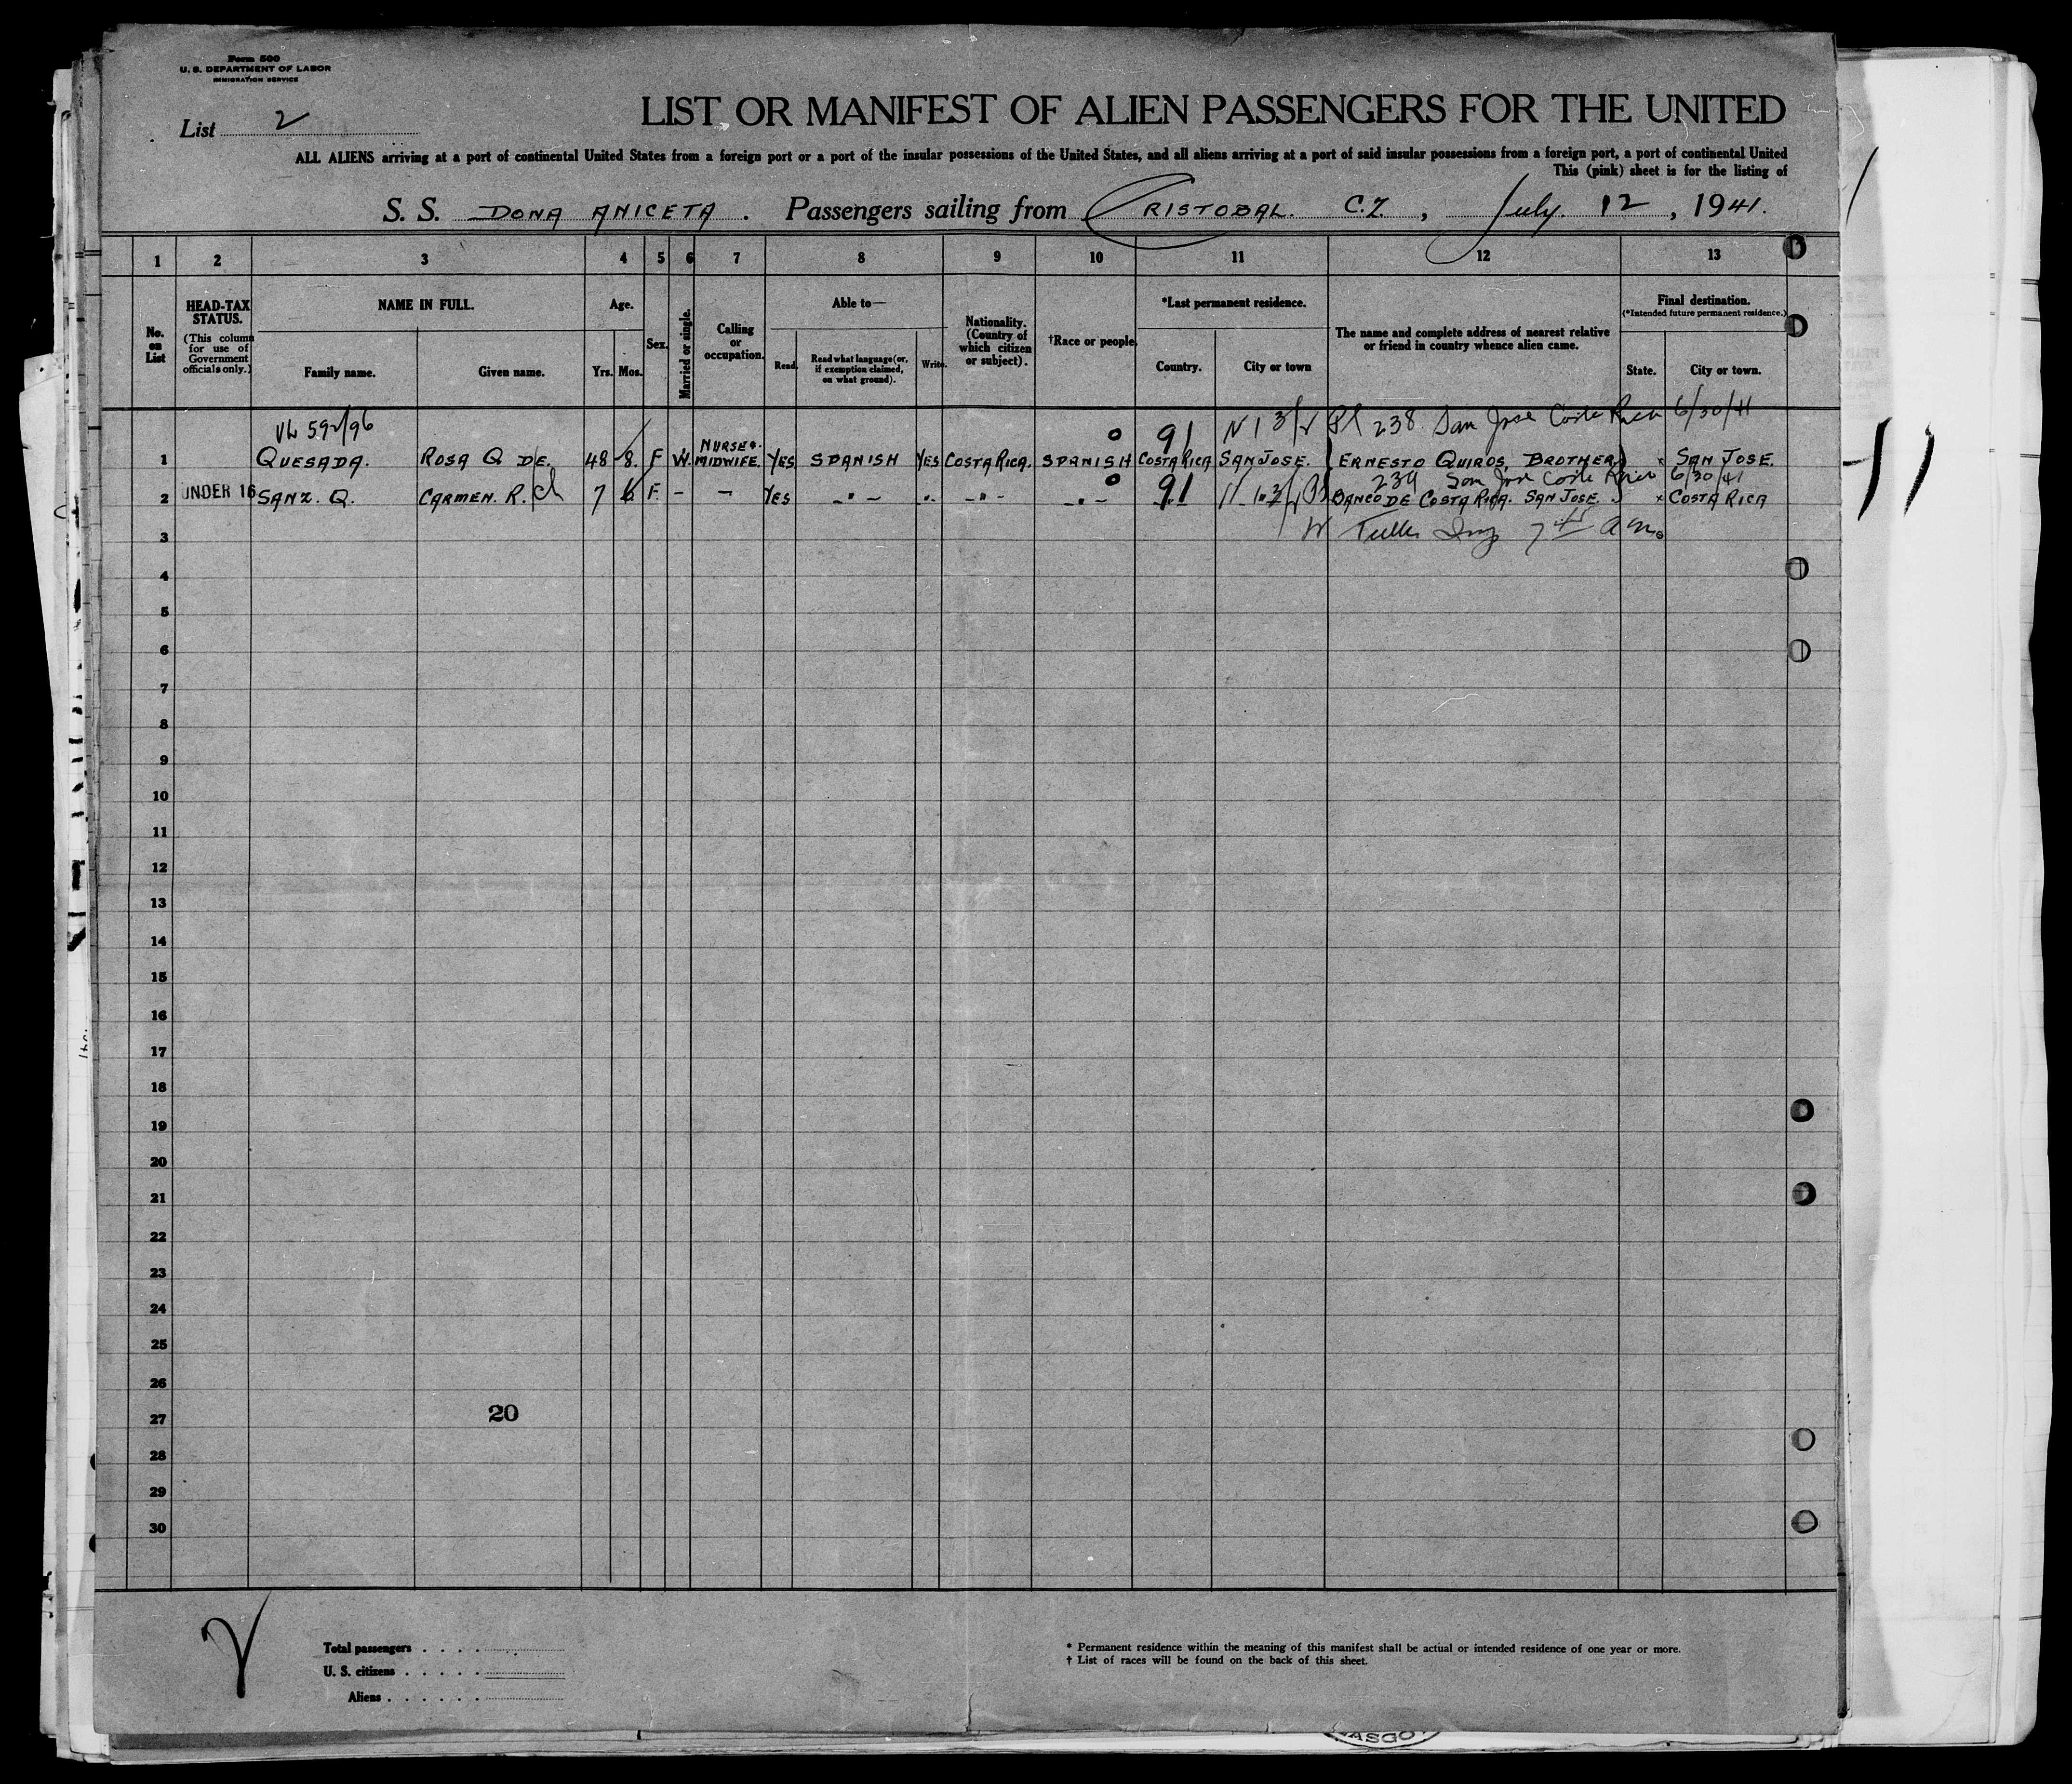 Form 500
U. S. DEPARTMENT OF LABOR
IMMIGRATION SERVICE
List 2
LIST OR MANIFEST OF ALIEN PASSENGERS FOR THE UNITED
ALL ALIENS arriving at a port of continental United States from a foreign port or a port of the insular possessions of the United States, and all aliens arriving at a port of said insular possessions from a foreign port, a port of continental United
This (pink) sheet is for the listing of
S. S. DONA ANICETA. Passengers sailing from CRISTOBAL. C.Z., July. 12, 1941.
1 2 3 4 5 6 7 8 9 10 11 12 13
No. on List
HEAD-TAX STATUS.
(This column for use of Government officials only.)
NAME IN FULL.
Family name. Given name.
Age.
Yrs. Mos.
Sex.
Married or single.
Calling or occupation.
Able to—
Read. Read what language (or, if exemption claimed, on what ground). Write.
Nationality. (Country of which citizen or subject).
†Race or people.
*Last permanent residence.
Country. City or town
The name and complete address of nearest relative or friend in country whence alien came.
Final destination.
(*Intended future permanent residence.)
State. City or town.
592/96 91 238 San Jose Costa Rica 6/30/41
1 QUESADA. ROSA Q DE. 48 8. F W. NURSE & MIDWIFE. YES SPANISH YES COSTA RICA. SPANISH COSTA RICA SAN JOSE. ERNESTO QUIROS, BROTHER × SAN JOSE.
239 San Jose Costa Rica 6/30/41
2 UNDER 16 SANZ. Q. CARMEN. R. ch 7 6 F. - - YES -"- ". -"- -"- 91 BANCO DE COSTA RICA. SAN JOSE. × COSTA RICA
3
4
5
6
7
8
9
10
11
12
13
14
15
16
17
18
19
20
21
22
23
24
25
26
27
28
29
30
20
Total passengers . . . .
U. S. citizens . . . . .
Aliens . . . . . .
* Permanent residence within the meaning of this manifest shall be actual or intended residence of one year or more.
† List of races will be found on the back of this sheet.